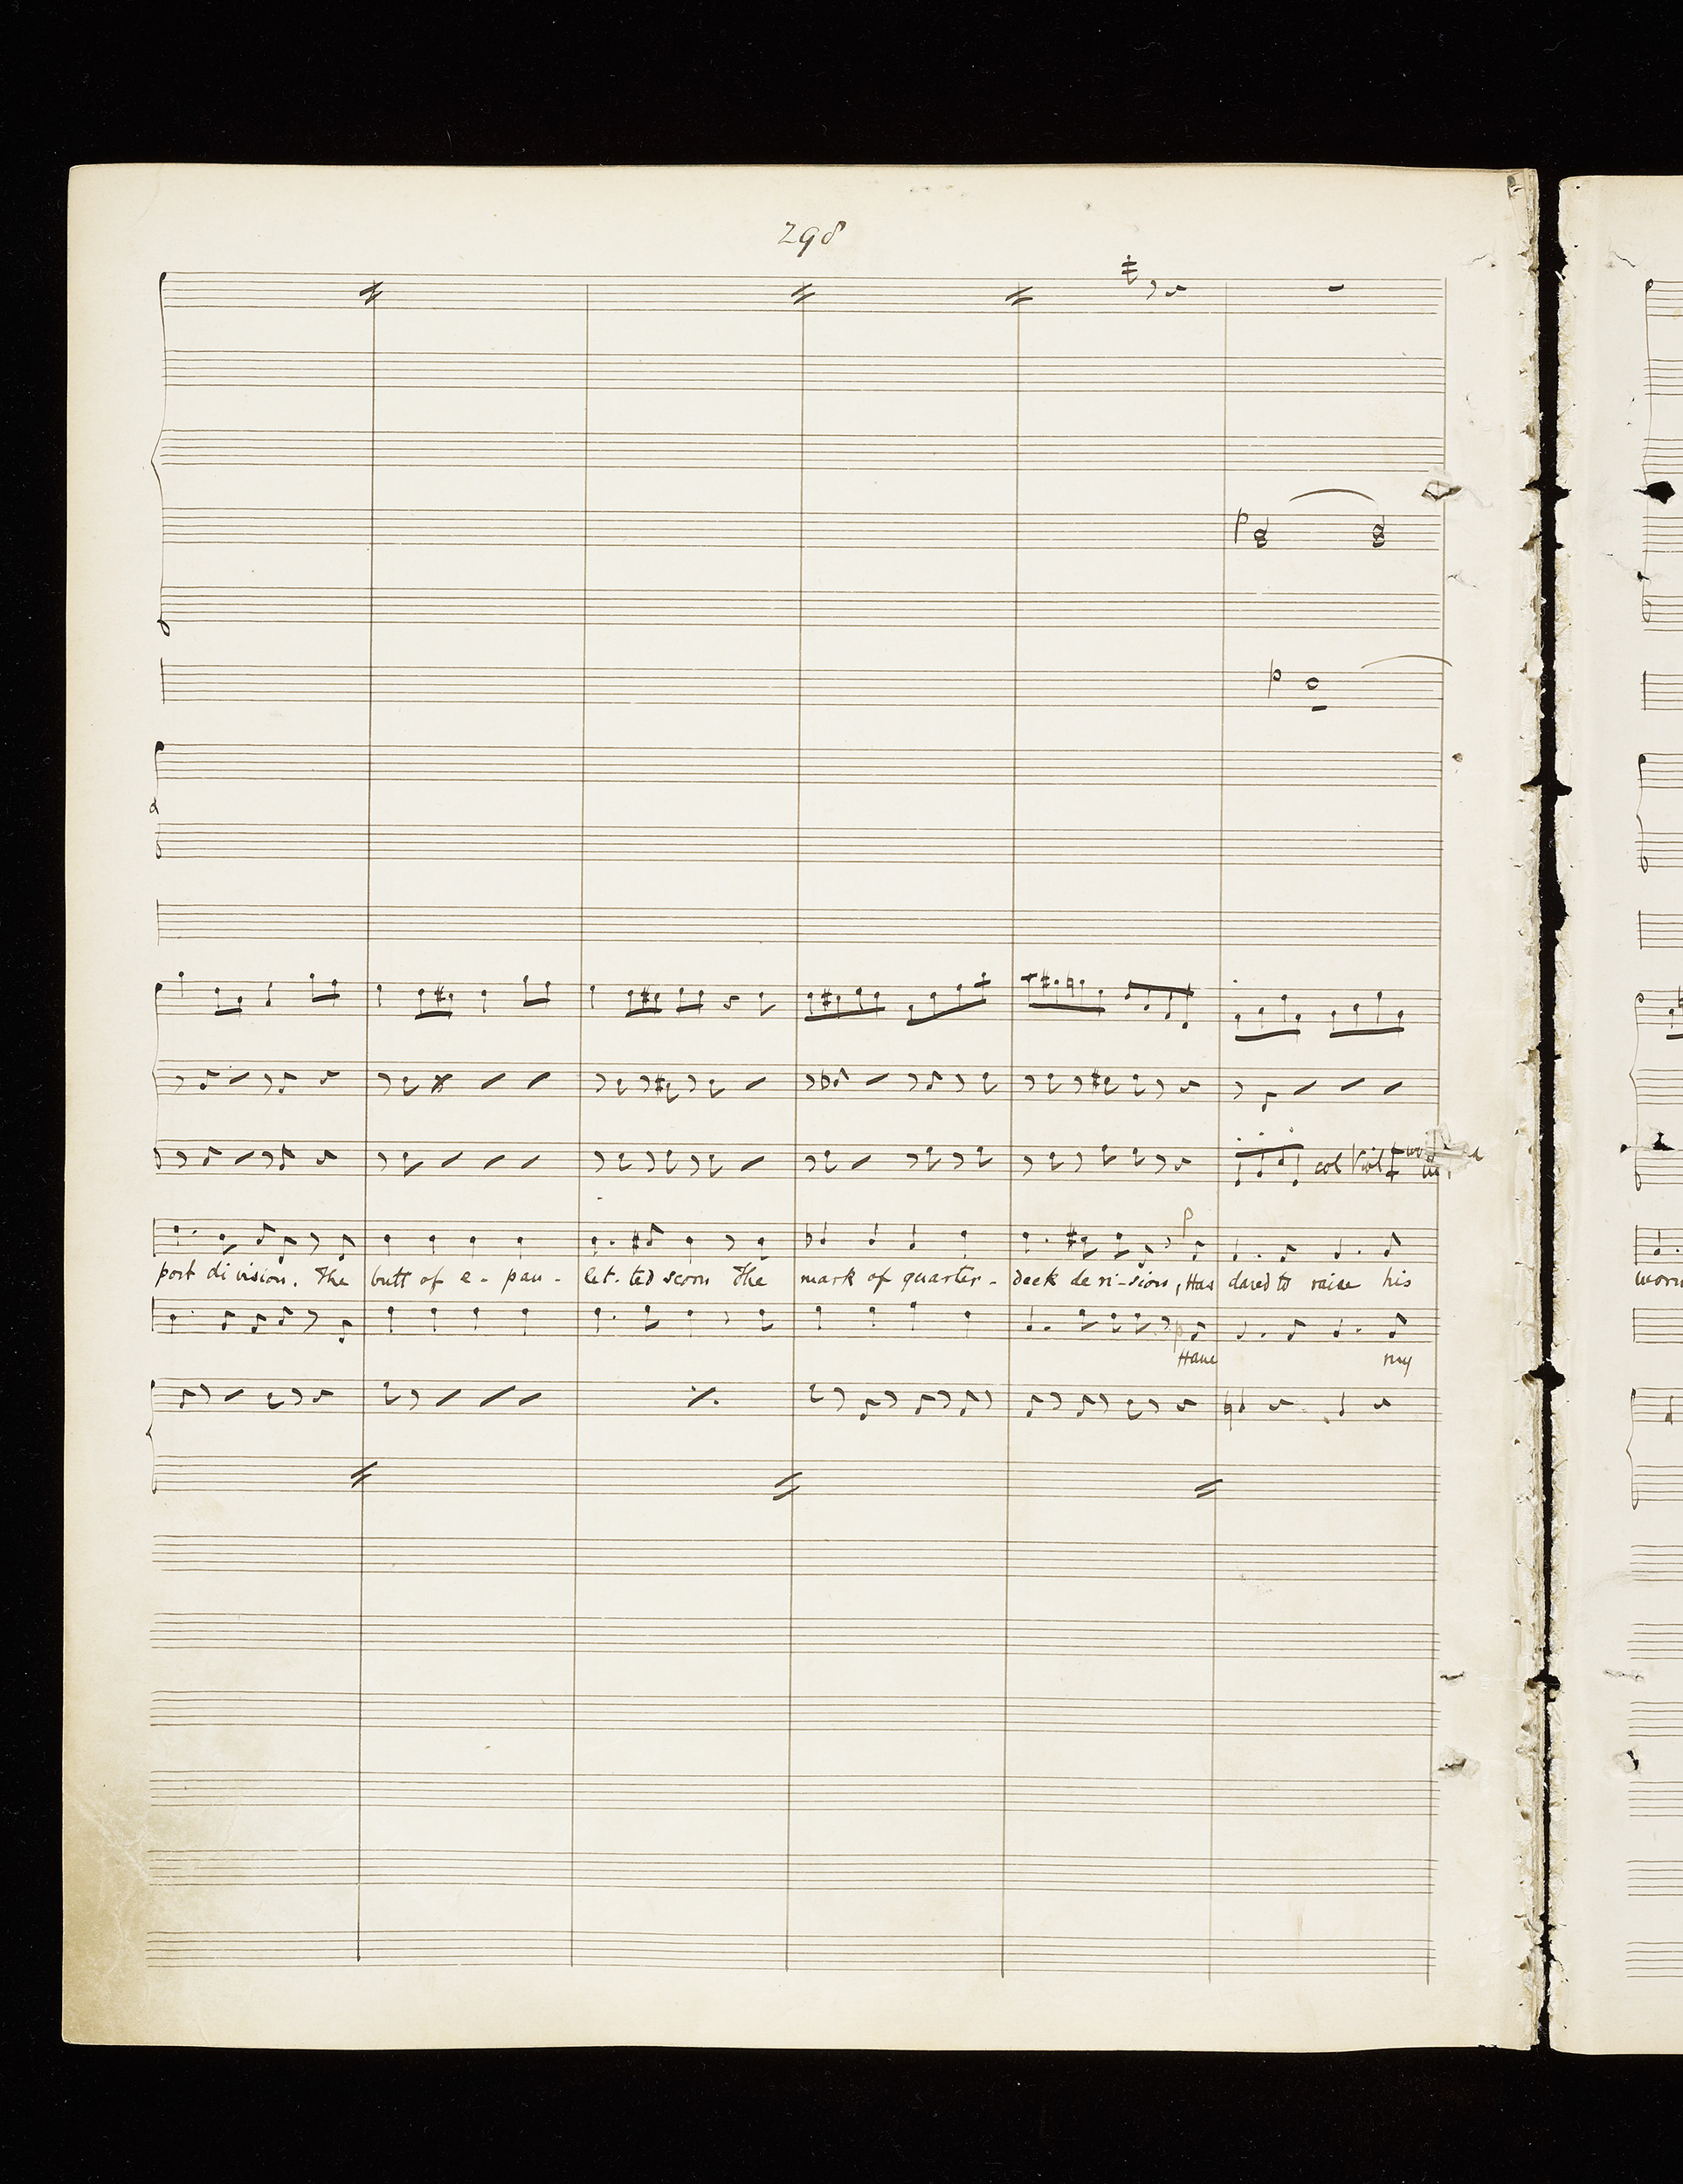 298
p
p
col Viol I
p
port di vision. The butt of e - pau - let - ted scorn The mark of quarter - deck de ri - sion, Has dared to raise his
p
Have my
worm